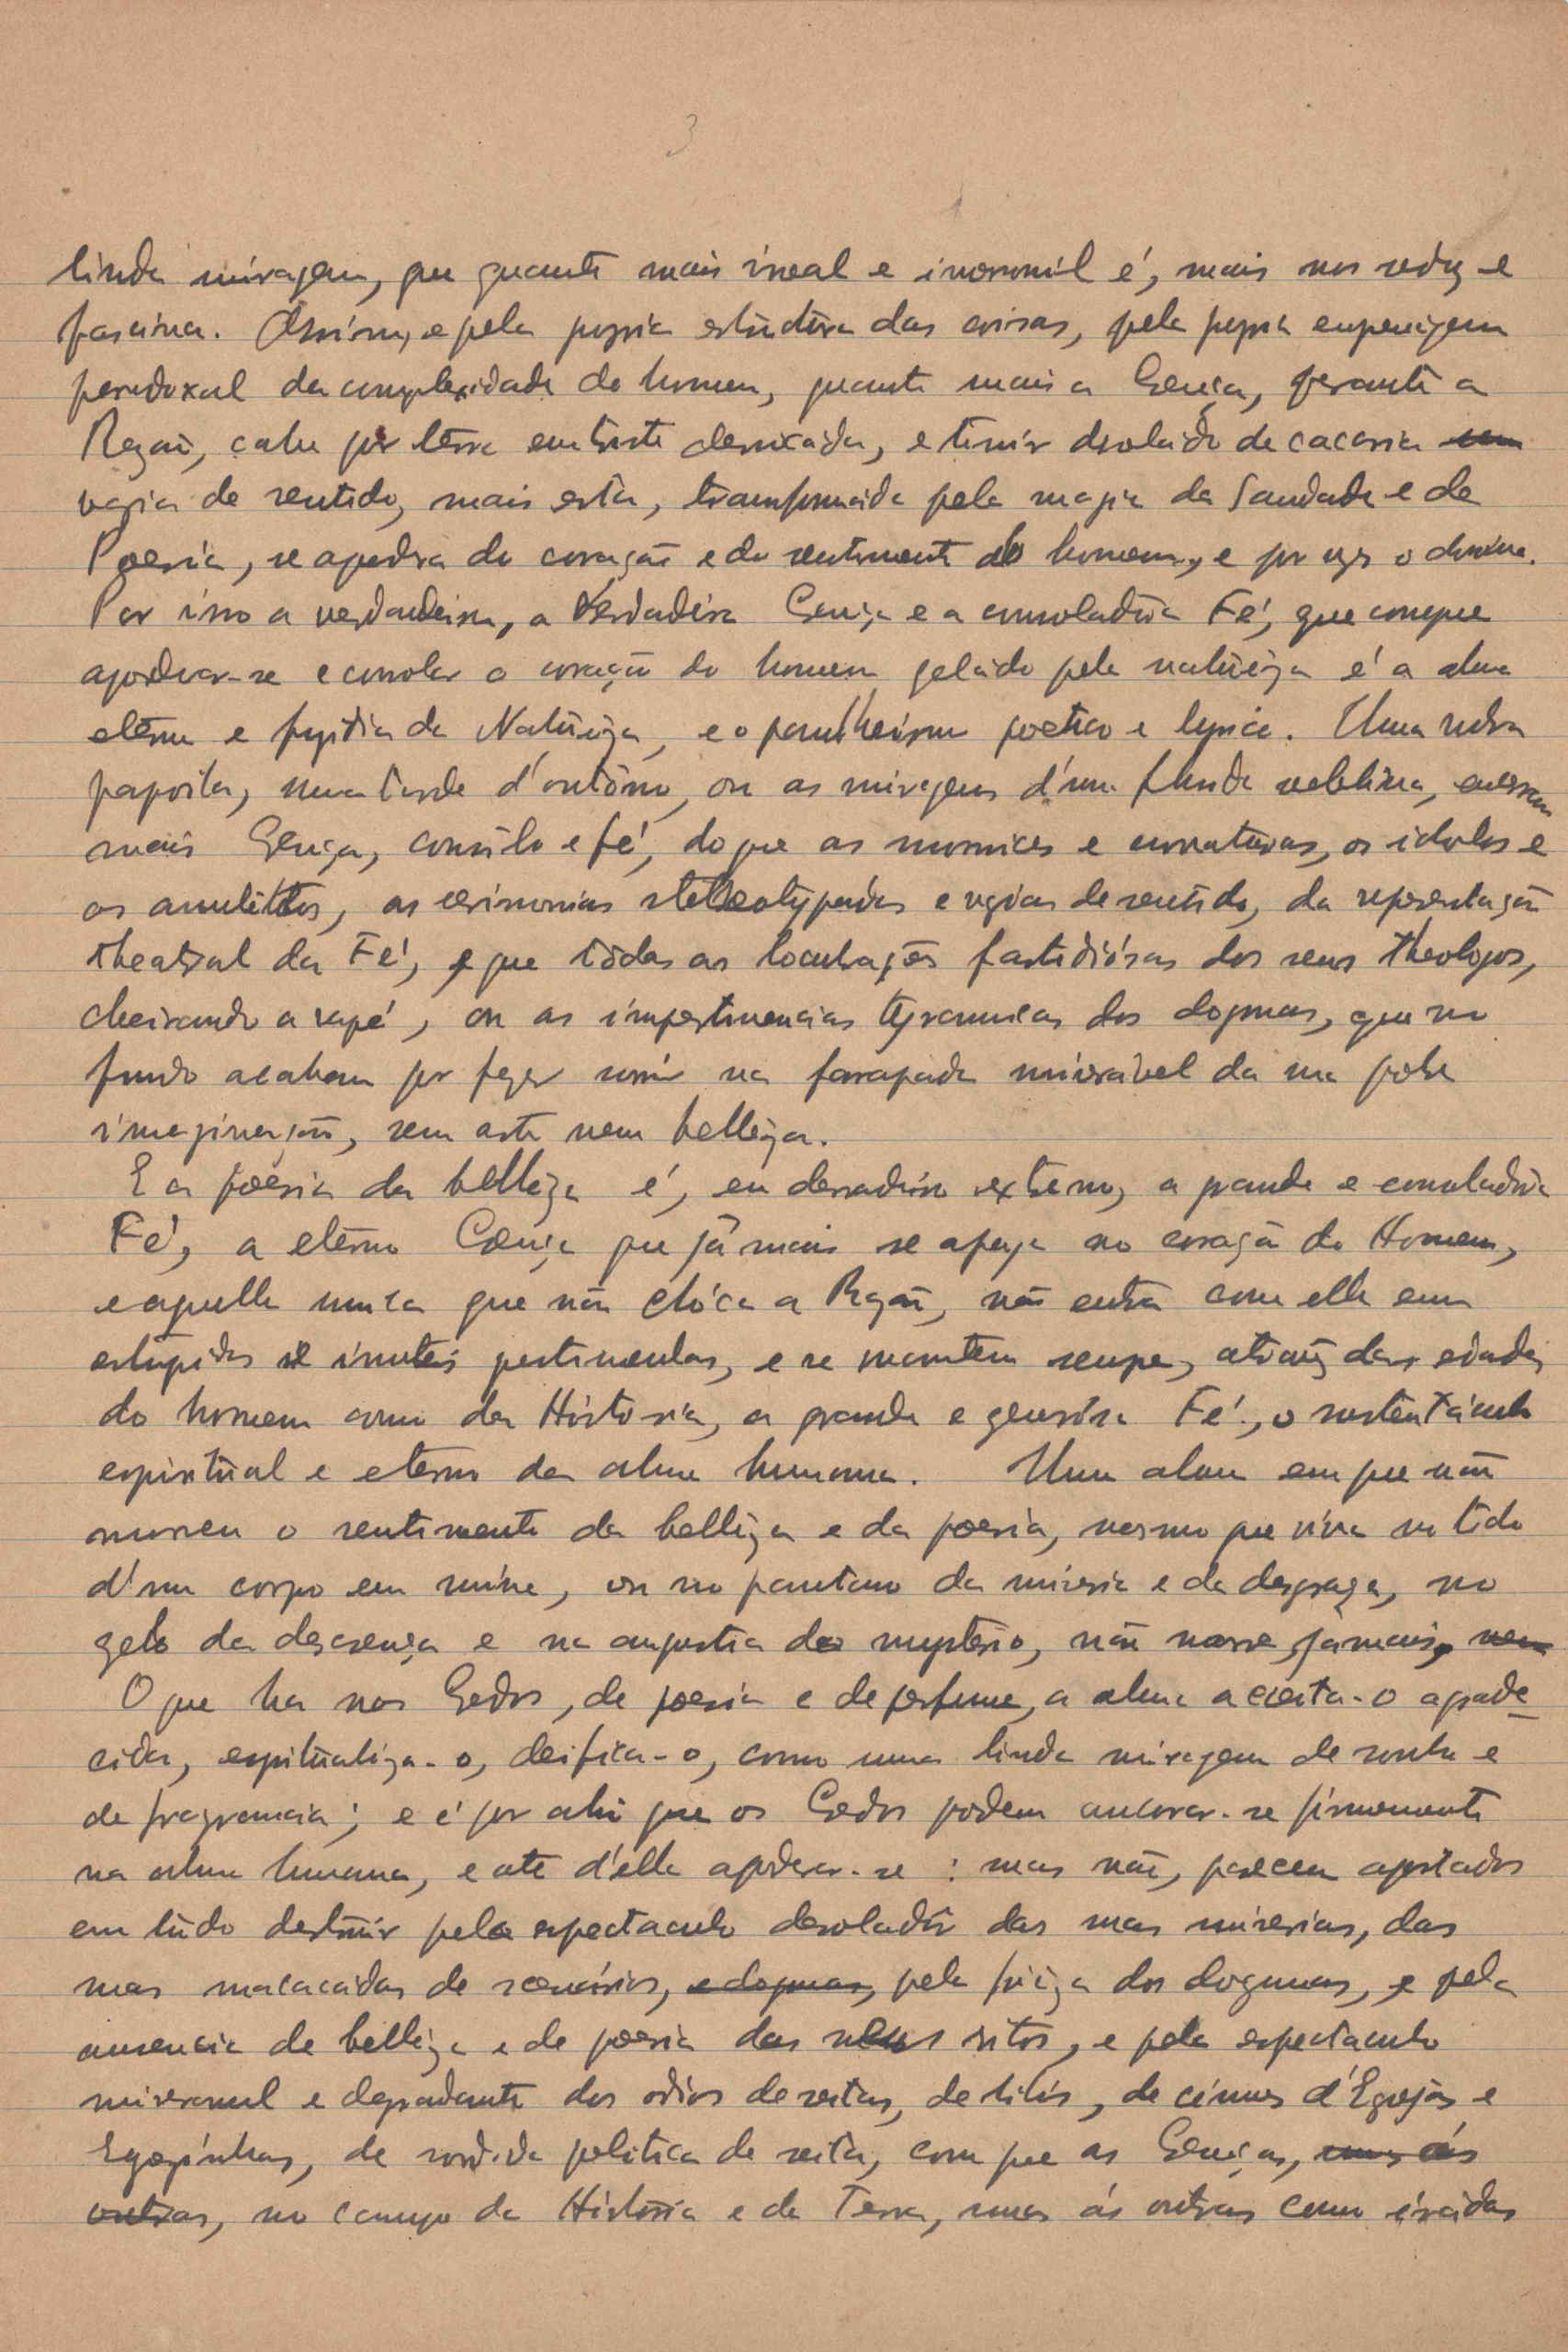 3
linda miragem, que quanto mais irreal e inverosimil é, mais nos seduz e
fascina. Assim, e pela propria estructura das coisas, pela propria engrenagem
paradoxal da complexidade do homem, quanto mais a Crença, perante a
Razão, cahe por terra em triste derrocada, e tinir desolado de cacaria
vazia de sentido, mais esta, transformada pela magia da Saudade e da
Poesia, se apodera do coração e do sentimento do homem, e por vezes o domina.
Por isso a verdadeira, a Verdadeira Crença e a consoladora Fé, que consegue
apoderar-se e consolar o coração do homem gelado pela natureza é a alma
eterna e fugidia da Natureza, e o pantheismo poetico e lyrico. Uma rubra
papoila, numa tarde d'outono, ou as miragens d'uma funda neblina, encerram
mais Crença, consolo e fé, do que as momices e ornaturas, os idolos e
os amulettos, as cerimonias stereotypadas e vazias de sentido, da representação
theatral da Fé, e que todas as locubrações fastidiósas dos seus theologos,
cheirando a rapé, ou as impertinencias tyrannicas dos dogmas, que no
fundo acabam por fazer sorrir na farrapada miseravel da sua pobre
imaginação, sem arte nem belleza.
E a poesia da belleza é, em derradeiro extremo, a grande e consoladora
Fé, a eterna Crença que jámais se apaga no coração do Homem,
e aquella unica que não chóca a Razão, não entra com ella em
estupidas e inuteis pertinencias, e se mantem sempre, atravez das edades
do homem como da Historia, a grande e generosa Fé, o sustentáculo
espiritual e eterno da alma humana. Uma alma em que não
morreu o sentimento da belleza e da poesia, mesmo que viva no lodo
d'um corpo em ruina, ou no pantano da miseria e da desgraça, no
gelo da descrença e na angustia do mysterio, não morre jamais, nem
O que ha nos Credos, de poesia e de perfume, a alma acceita-o agrade-
cida, espiritualiza-o, deifica-o, como uma linda miragem de sonho e
de fragrancia; e é por ahi que os Credos podem ancorar-se firmemente
na alma humana, e até d'ella apoderar-se: mas não, parecem apostados
em tudo destruir pelo espectaculo desolador das suas miserias, das
suas macacadas de scenários, e dogmas, pela frieza dos dogmas, e pela
ausencia de belleza e de poesia dos seus ritos, e pelo espectaculo
miseravel e degradante dos odios de seitas, de , de ciumes d'Egrejas e
Egrejinhas, de sordida politica de seita, com que as Crenças, umas ás
outras, no campo da Historia e da Terra, umas ás outras como iradas